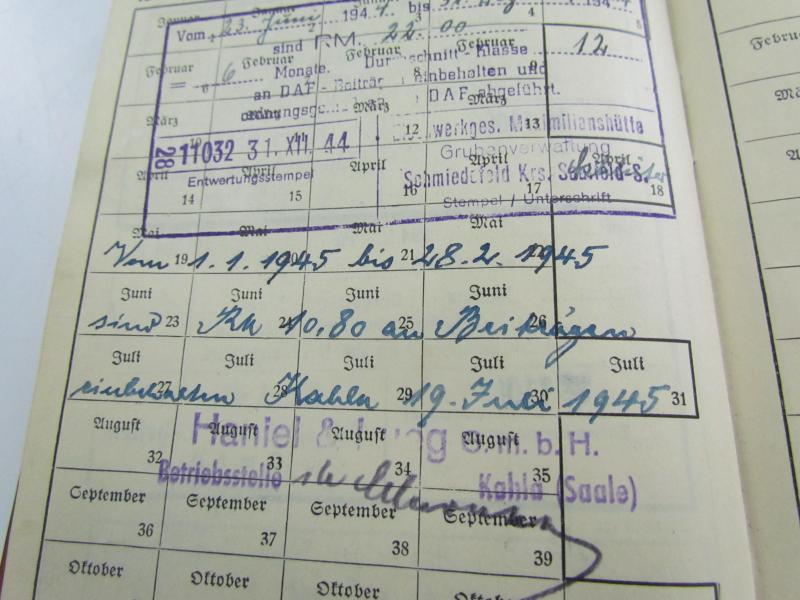 Januar Januar Januar
Vom 23. Juni 1944 bis 31. Aug. 194 4
2 3 4 5
sind RM. 22.00
Februar Februar Februar Februar
Durchschnitt-Klasse 12
= 6 Monate.
6 8 9
an DAF-Beiträg einbehalten und
ordnungsge DAF abgeführt.
März März März März
12 13
Eisenwerkges. Maximilianshütte
28 11032 31. XII. 44
Grubenverwaltung
April April April April April
Entwertungsstempel
Schmiedefeld Krs. Saalfeld-S.
14 15 16 17 18
Stempel / Unterschrift
Mai Mai Mai Mai
19 20 21 22
Vom 1.1.1945 bis 28.2.1945
Juni Juni Juni Juni
23 24 25 26
sind RM 10.80 an Beiträgen
Juli Juli Juli Juli Juli
27 28 29 30 31
einbehalten Kahla 19. Juni 1945
August August August August
Haniel & Lueg G.m.b.H.
32 33 34 35
Betriebsstelle Kahla (Saale)
September September September September
36 37 38 39
Oktober Oktober Oktober Oktober
Februar
Mä